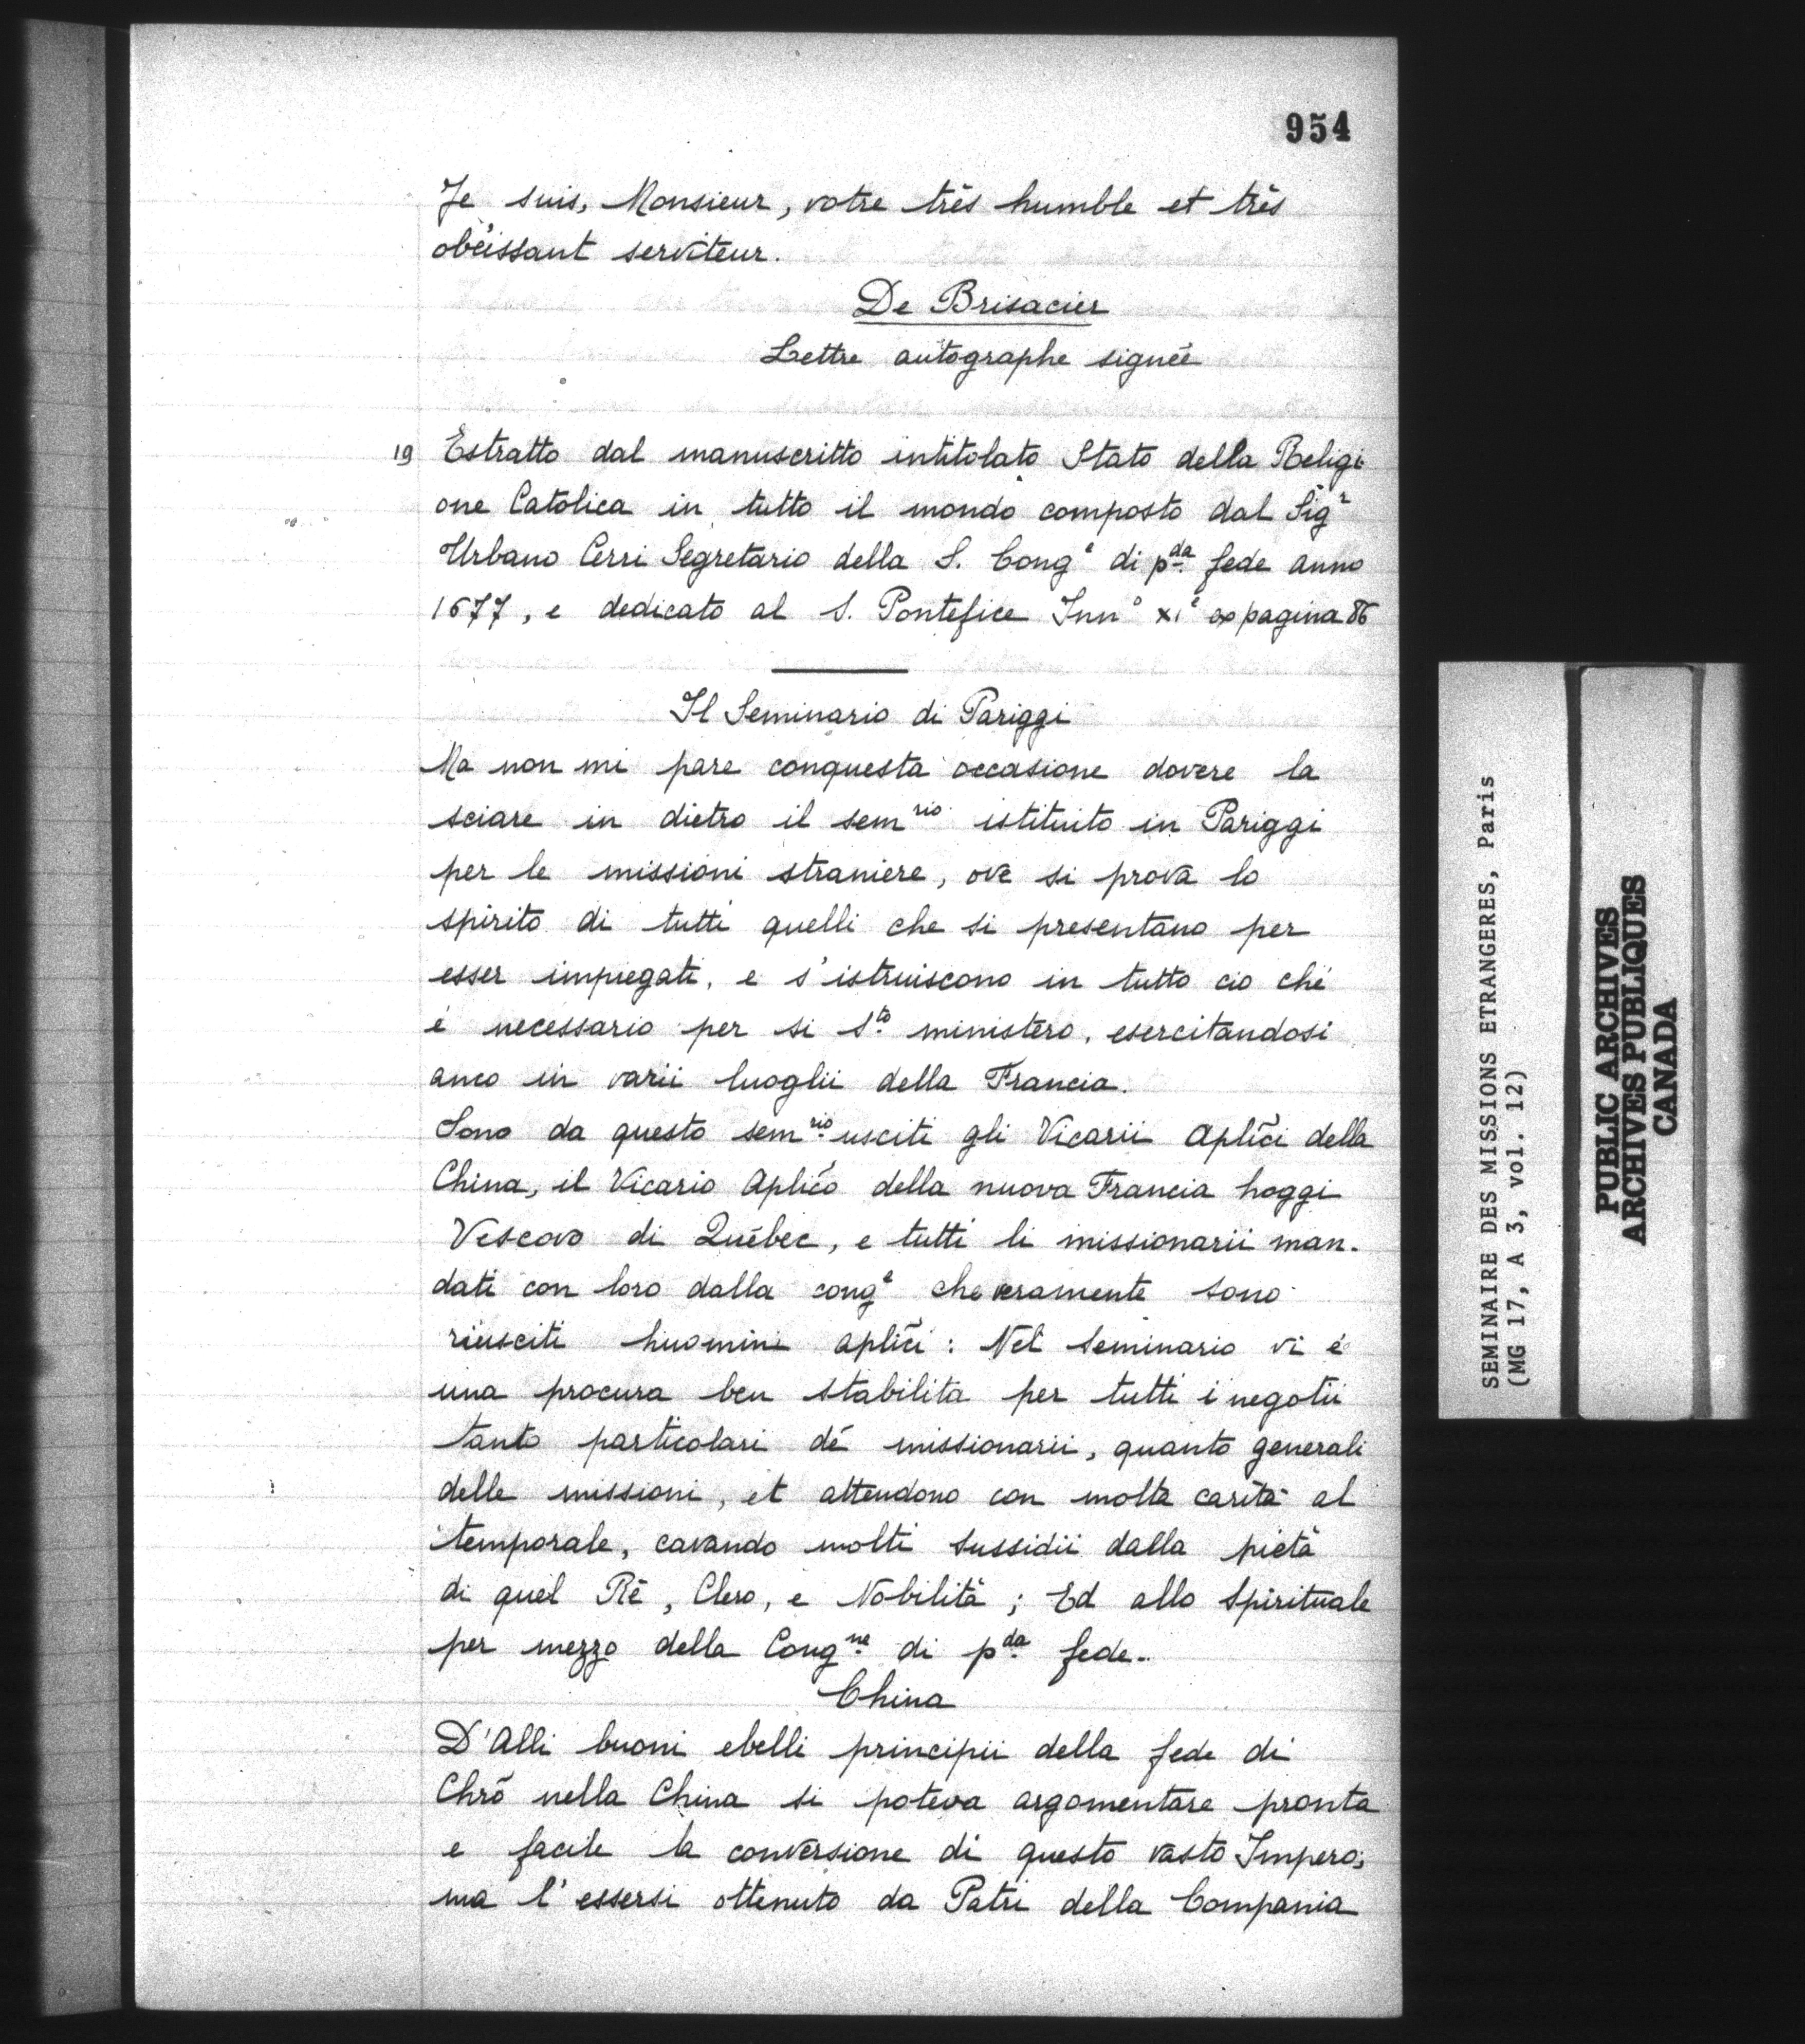 954
Je suis, Monsieur, votre très humble et très
obéissant serviteur.
De Brisacier
Lettre autographe signée
19 Estratto dal manuscritto intitolato Stato della Religi
one Catolica in tutto il mondo composto dal Sig.r
Urbano Cerri Segretario della S. Cong.e di p.da fede anno
1677, e dedicato al S. Pontefice Inn.o XI.e pagina 86
Il Seminario di Pariggi
Ma non mi pare conquesta occasione dovere la
sciare in dietro il sem.rio istituito in Pariggi
per le missioni straniere, ove si prova lo
spirito di tutti quelli che si presentano per
esser impiegati, e s'istruiscono in tutto cio ché
é necessario per si S.to ministero, esercitandosi
anco in varii luoglii della Francia.
Sono da questo sem.rio usciti gli Vicarii Aplici della
China, il Vicario Aplico della nuova Francia hoggi
Vescovo di Québec, e tutti li missionarii man-
dati con loro dalla cong.e che veramente sono
riusciti huomini aplici : Nel seminario vi é
una procura ben stabilita per tutti i negotii
tanto particolari dé missionarii, quanto generali
delle missioni, et attendono con molta carità al
temporale, cavando molti sussidii dalla pietà
di quel Ré, Clero, e Nobilità ; Ed allo Spirituale
per mezzo della Cong.ne di p.da fede.
China
D'Alli buoni ebelli principii della fede di
Chrõ nella China si poteva argomentare pronta
e facile la conversione di questo vasto Impero;
ma l'essersi ottenuto da Patri della Compania
SEMINAIRE DES MISSIONS ETRANGERES, Paris
(MG 17, A 3, vol. 12)
PUBLIC ARCHIVES
ARCHIVES PUBLIQUES
CANADA